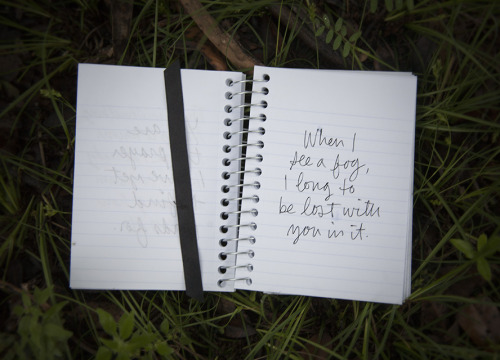 When I
see a fog,
I long to
be lost with
you in it.